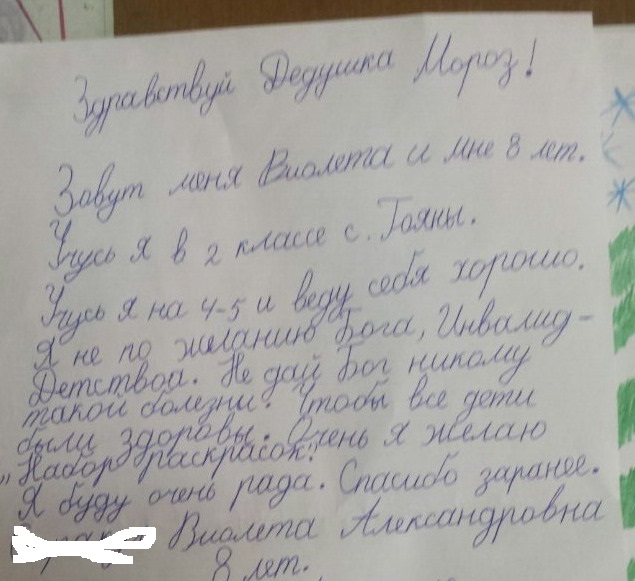 Здравствуй Дедушка Мороз!
Зовут меня Виолета и мне 8 лет.
Учусь я в 2 классе с. Гояны.
Учусь я на 4-5 и веду себя хорошо.
Я не по желанию Бога, Инвалид-
Детствоа. Не дай Бог никому
такой болезни. Чтобы все дети
были здоровы. Очень я желаю
„Набор раскрасок!
Я буду очень рада. Спасибо заранее.
Виолета Александровна
8 лет.